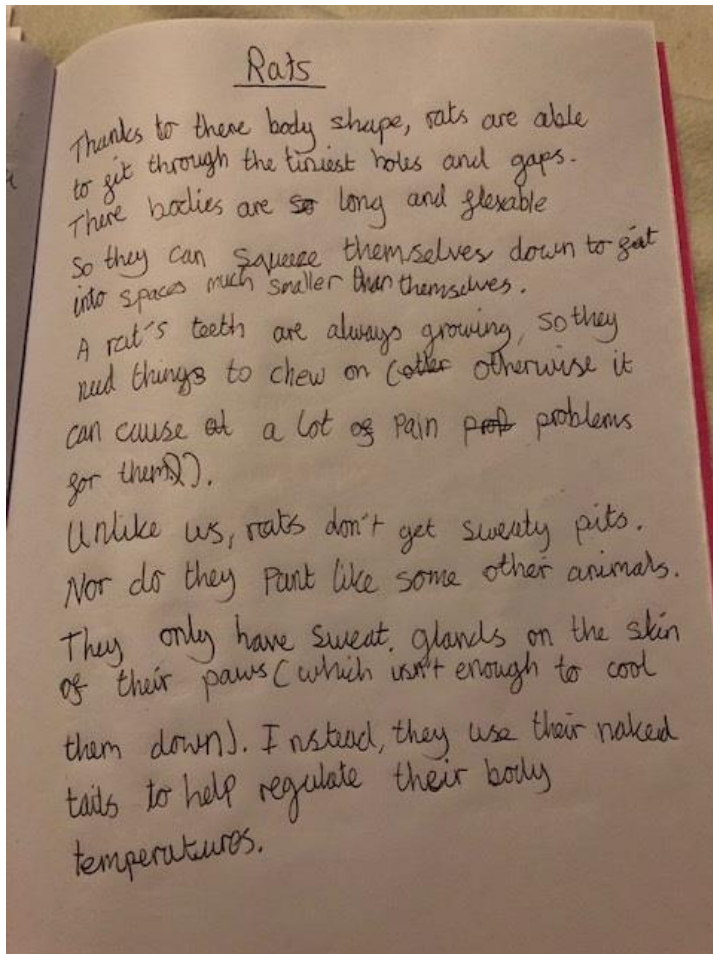 Rats
Thanks to there body shape, rats are able
to fit through the tiniest holes and gaps.
There bodies are so long and flexable
So they can squeeze themselves down to fit
into spaces much smaller than themselves.
A rat's teeth are always growing, so they
need things to chew on (other otherwise it
can cause a lot of pain prob problems
for them)).
Unlike us, rats don't get sweaty pits.
Nor do they pant like some other animals.
They only have sweat. glands on the skin
of their paws (which isn't enough to cool
them down). Instead, they use their naked
tails to help regulate their body
temperatures.